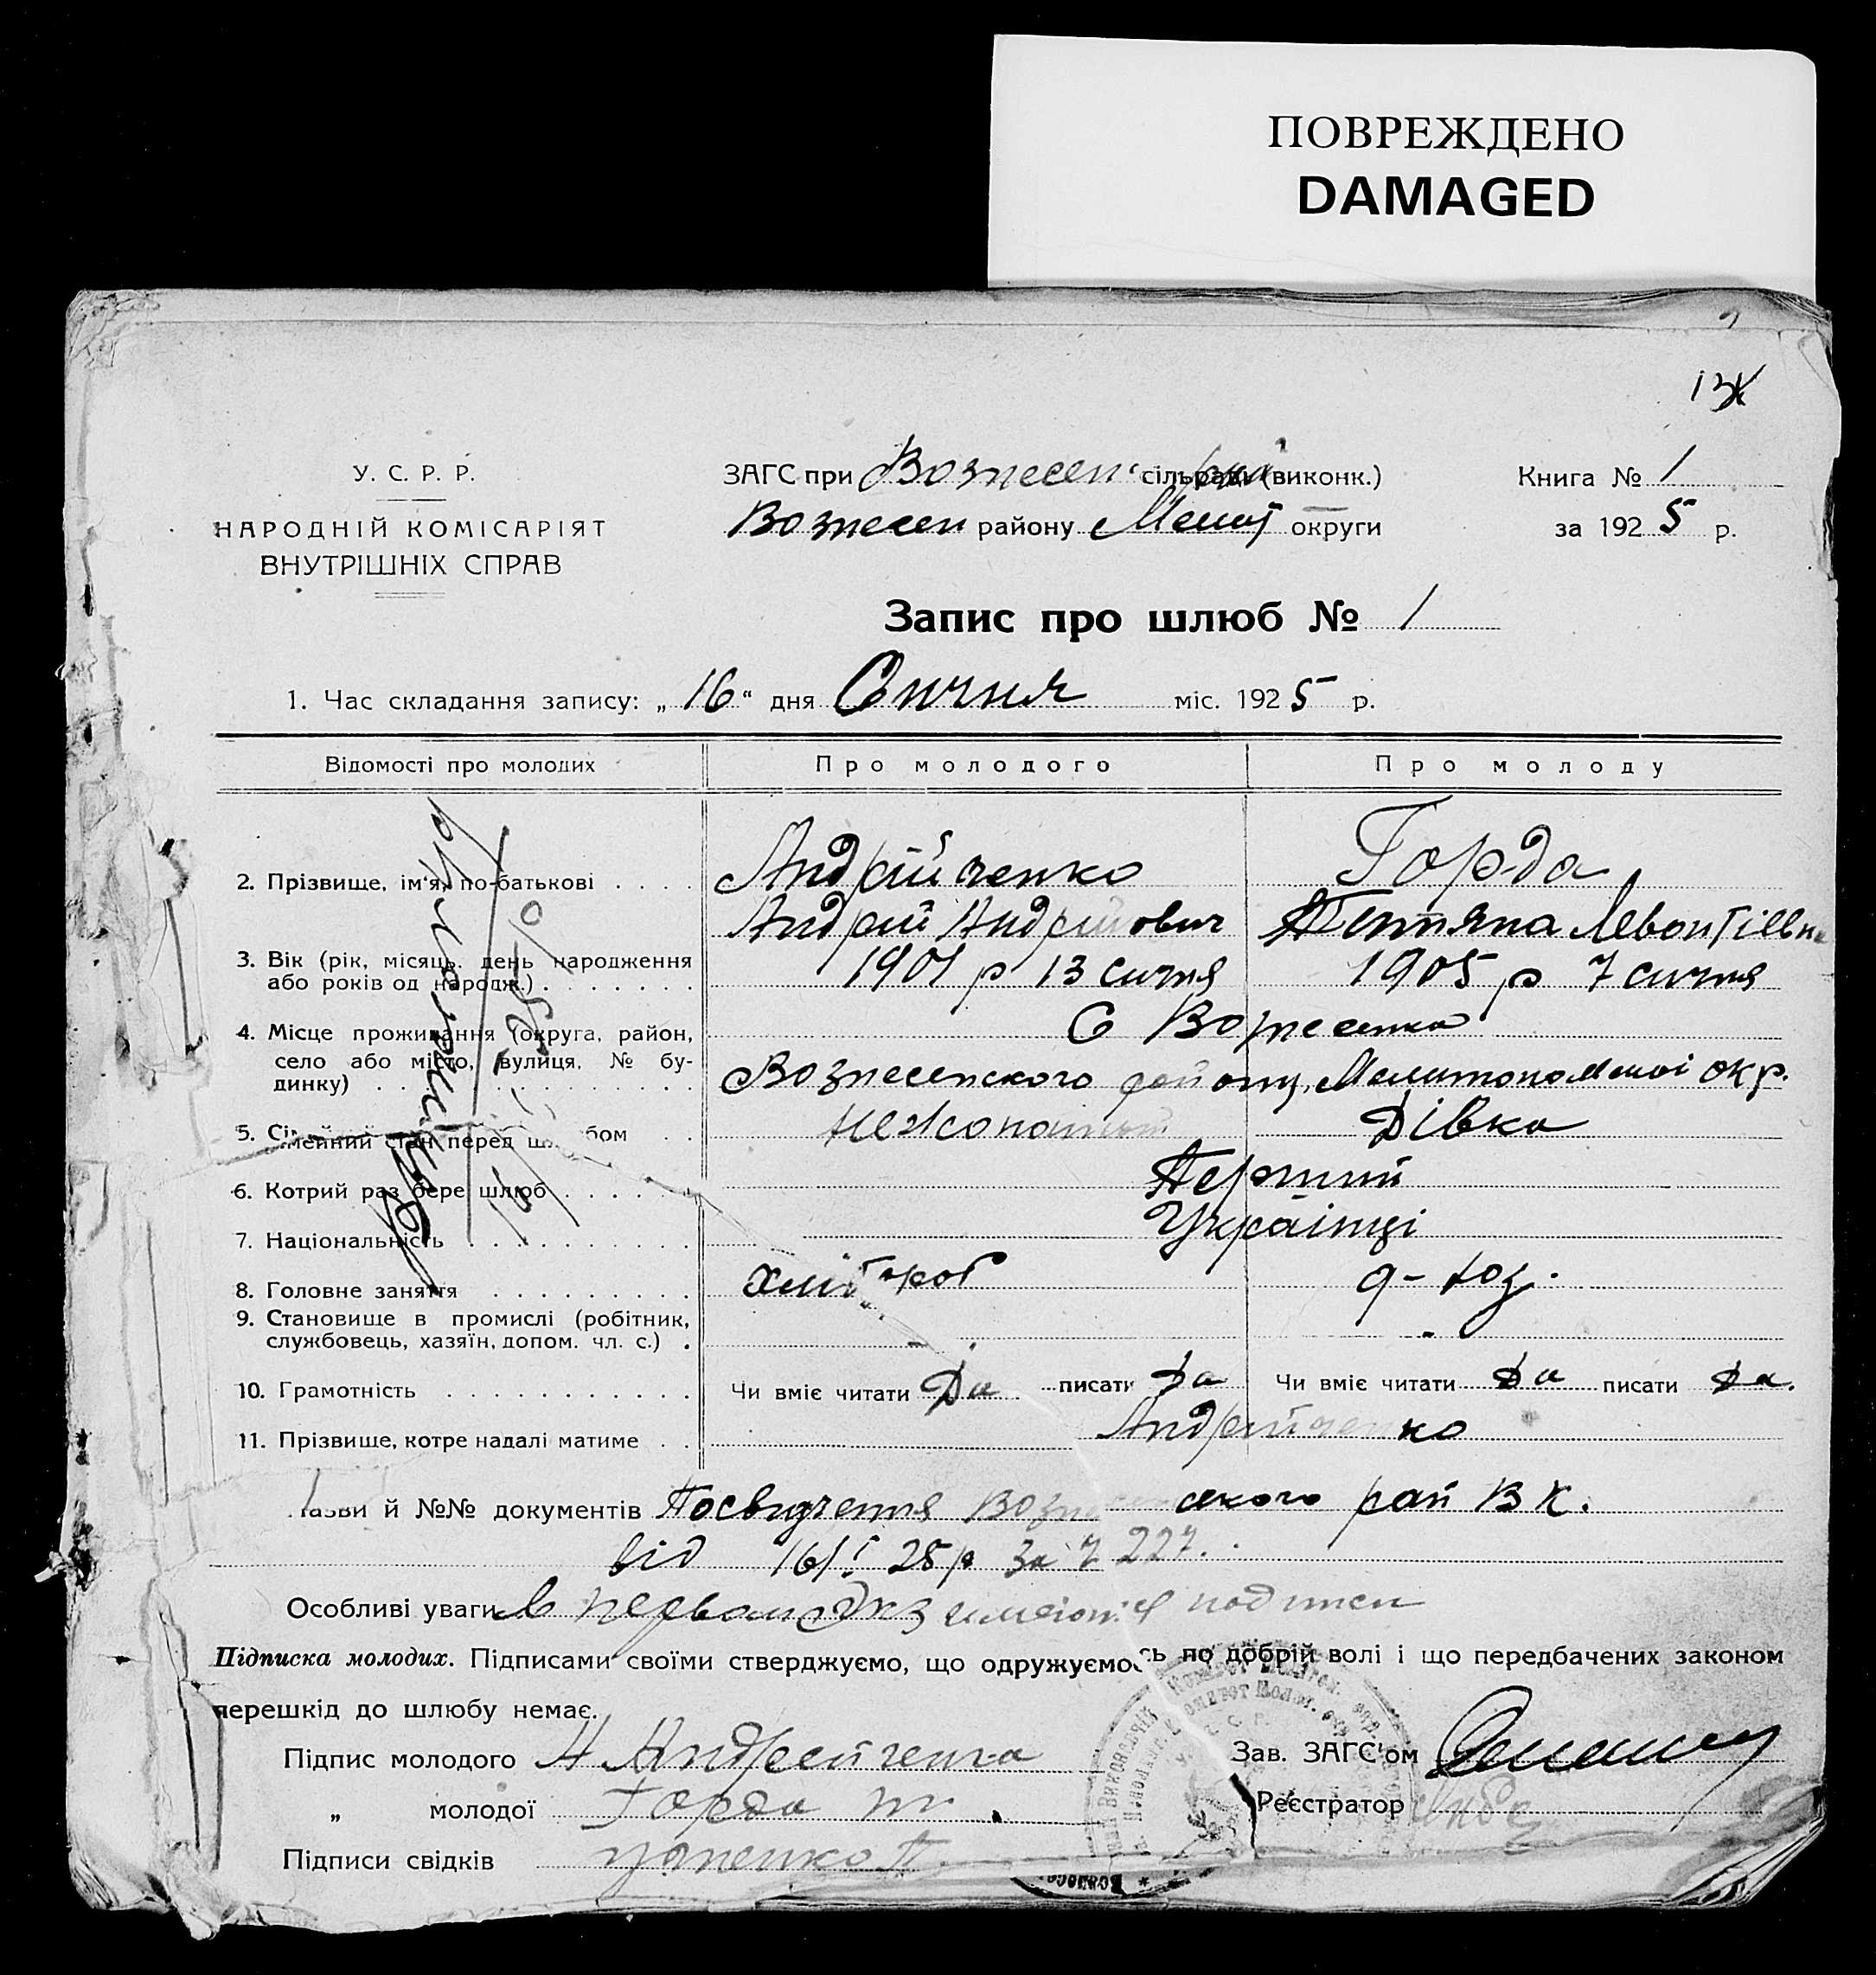 ПОВРЕЖДЕНО
DAMAGED
У. С. Р. Р.
НАРОДНІЙ КОМІСАРІЯТ
ВНУТРІШНІХ СПРАВ
ЗАГС при Вознесен сільради (виконк.)
Вознесен району Меліт округи
Книга № 1
за 1925 р.
Запис про шлюб № 1
1. Час складання запису: „16“ дня Січня міс. 1925 р.
Відомості про молодих Про молодого Про молоду
2. Прізвище, ім'я, по-батькові Андрійченко Горда
Андрій Андрійович Тетяна Левонтіевна
3. Вік (рік, місяць, день народження або років од народж.) 13 січня 1905 р 7 січня
4. Місце проживання (округа, район, село або місто, вулиця, № будинку) С Вознесенка
Вознесенского району, Мелитопольскої окр.
5. Сімейний стан перед шлюбом Дівка
6. Котрий раз бере шлюб Перший
7. Національність Українці
8. Головне заняття хлібороб
9. Становище в промислі (робітник, службовець, хазяїн, допом. чл. с.) - -
10. Грамотність Чи вміє читати Да писати Да Чи вміє читати Да писати Да.
11. Прізвище, котре надалі матиме Андрійченко
Назви й №№ документів Посвидчення Вознесенского рай В К.
від 16/I 25 р за Ч 227.
Особливі уваги В первом экз имеются подписи
Підписка молодих. Підписами своїми стверджуємо, що одружуємось по добрій волі і що передбачених законом
перешкід до шлюбу немає.
Підпис молодого А Андрейченко
„ молодої Горда
Підписи свідків
Зав. ЗАГС'ом
Реєстратор